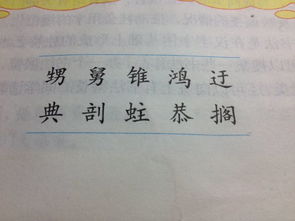 甥 舅 锥 鸿 迂
典 剖 蛀 恭 搁